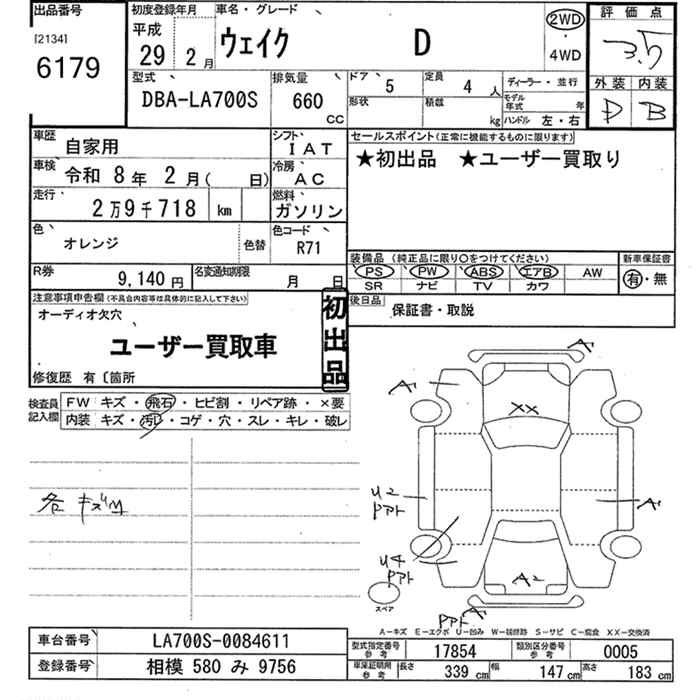 出品番号 初度登録年月 車名・グレード 評価点
[2134] 平成 ウェイク D 2WD 3.5
6179 29 2月 ・4WD 外装 内装
型式 排気量 ドア 5 定員 4人 ディーラー・並行 D B
DBA-LA700S 660 cc 形状 積載 kg モデル年式 年 ハンドル 左・右
車歴 自家用 シフト IAT セールスポイント(正常に機能するものに限ります)
車検 令和 8年 2月( 日) 冷房 AC ★初出品 ★ユーザー買取り
走行 2万9千718 km 燃料 ガソリン
色 オレンジ 色替 色コード R71 装備品 (純正品に限り○をつけてください) 新車保証書
R券 9,140円 名変通知期限 月 日 PS PW ABS エアB AW 有・無
SR ナビ TV カワ
注意事項申告欄(不具合内容等は具体的に記入して下さい) 初出品 後日品 保証書・取説
オーディオ欠穴
ユーザー買取車
修復歴 有 〔箇所
検査員記入欄 FW キズ・飛石・ヒビ割・リペア跡・×要
内装 キズ・汚レ・コゲ・穴・スレ・キレ・破レ
A
A
XX
各キズ凹
U2 PPト A
U4 PPト
A2
スペア
PPト A
A-キズ E-エクボ U-凹み W-補修跡 S-サビ C-腐食 XX-交換済
車台番号 LA700S-0084611 型式指定番号 参考 17854 類別区分番号 参考 0005
登録番号 相模 580 み 9756 車庫証明用 参考 長さ 339 cm 幅 147 cm 高さ 183 cm